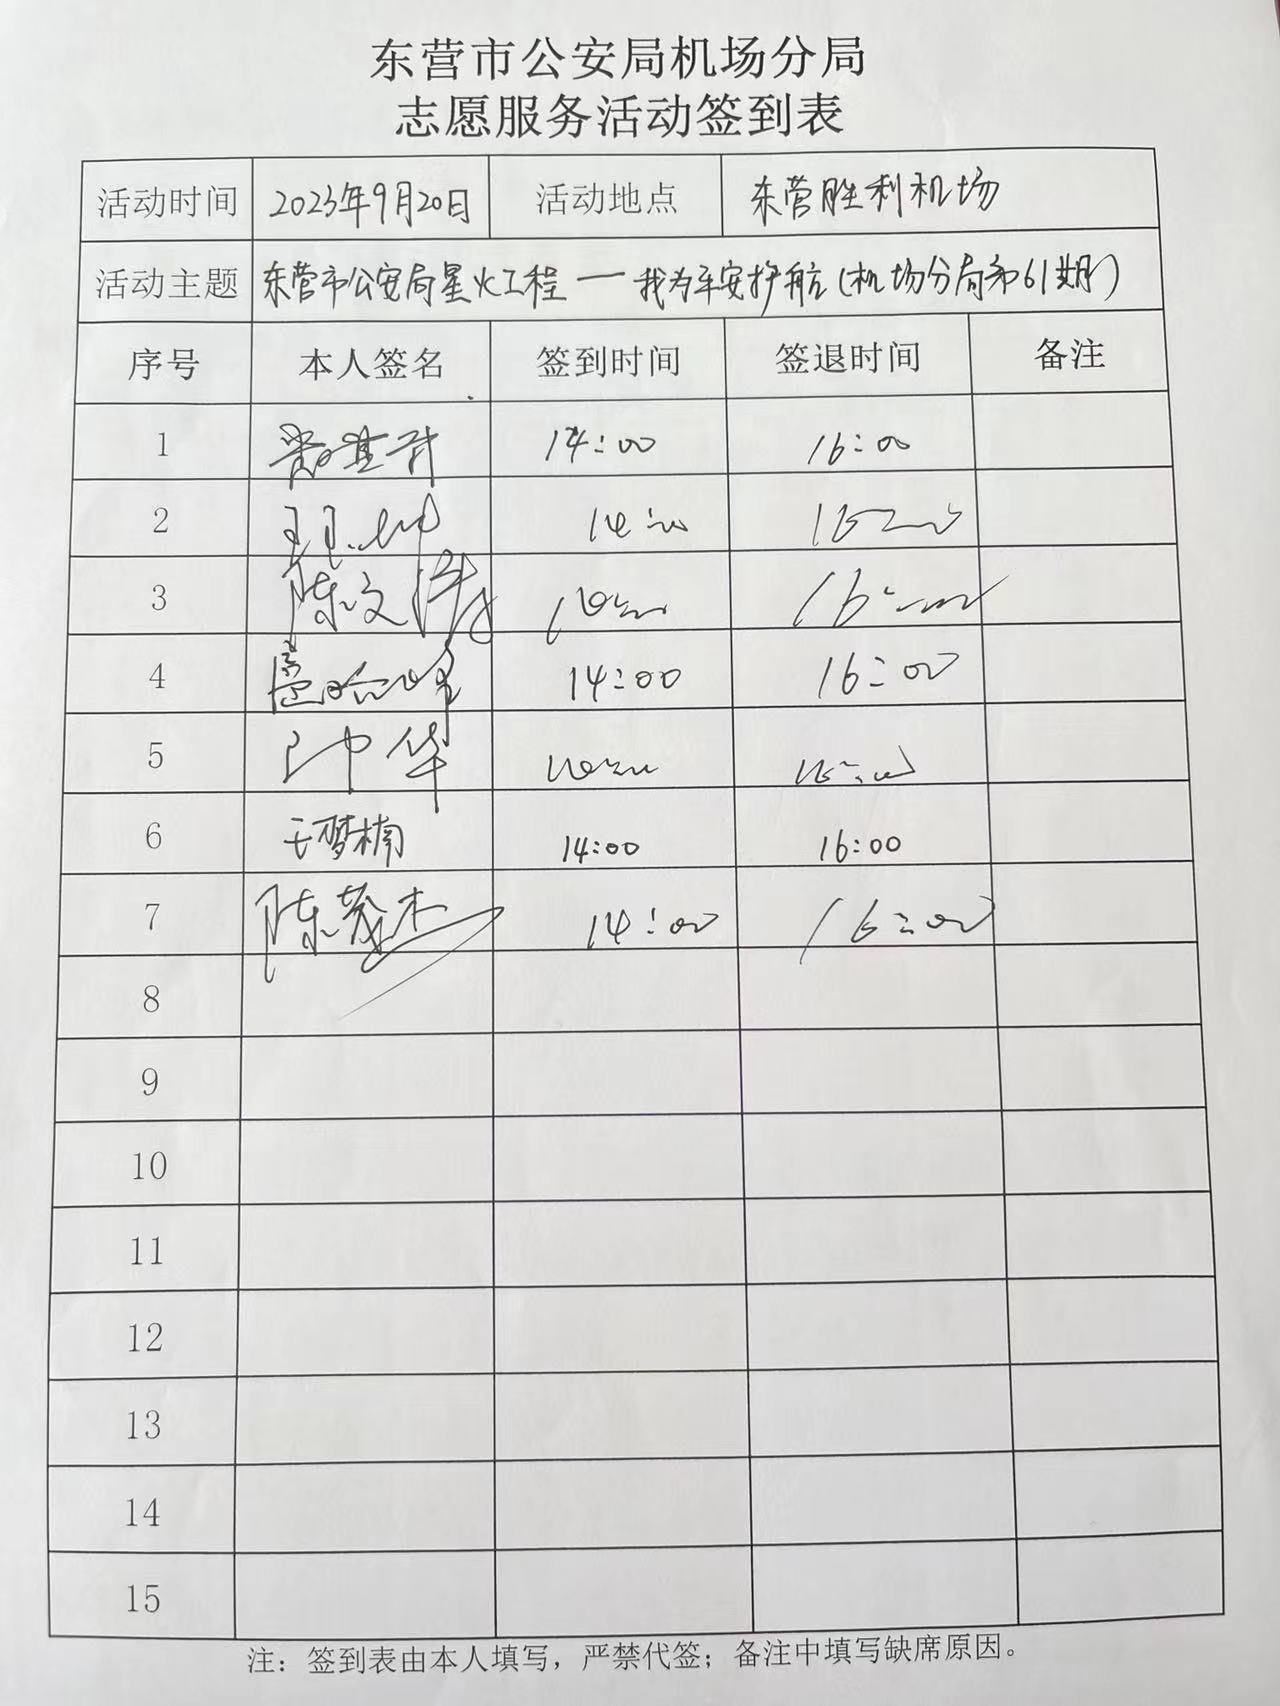 东营市公安局机场分局
志愿服务活动签到表
活动时间 2023年9月20日 活动地点 东营胜利机场
活动主题 东营市公安局星火工程——我为平安护航(机场分局第61期)
序号 本人签名 签到时间 签退时间 备注
1 14:00 16:00
2 14:00 16:00
3 陈文 16:00
4 14:00 16:00
5 华 16:00
6 王梦楠 14:00 16:00
7 陈茂杰 14:00 16:00
8
9
10
11
12
13
14
15
注：签到表由本人填写，严禁代签；备注中填写缺席原因。